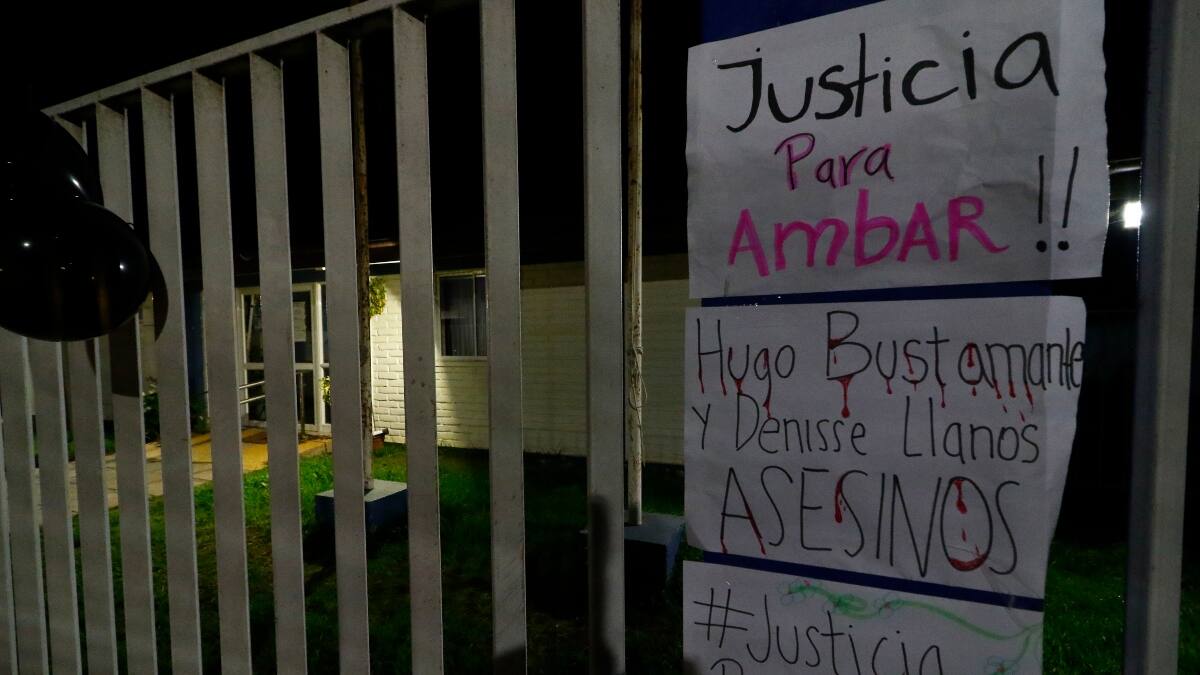 Justicia
Para
AmbAR !!
Hugo Bustamante
y Denisse Llanos
ASESINOS
#Justicia